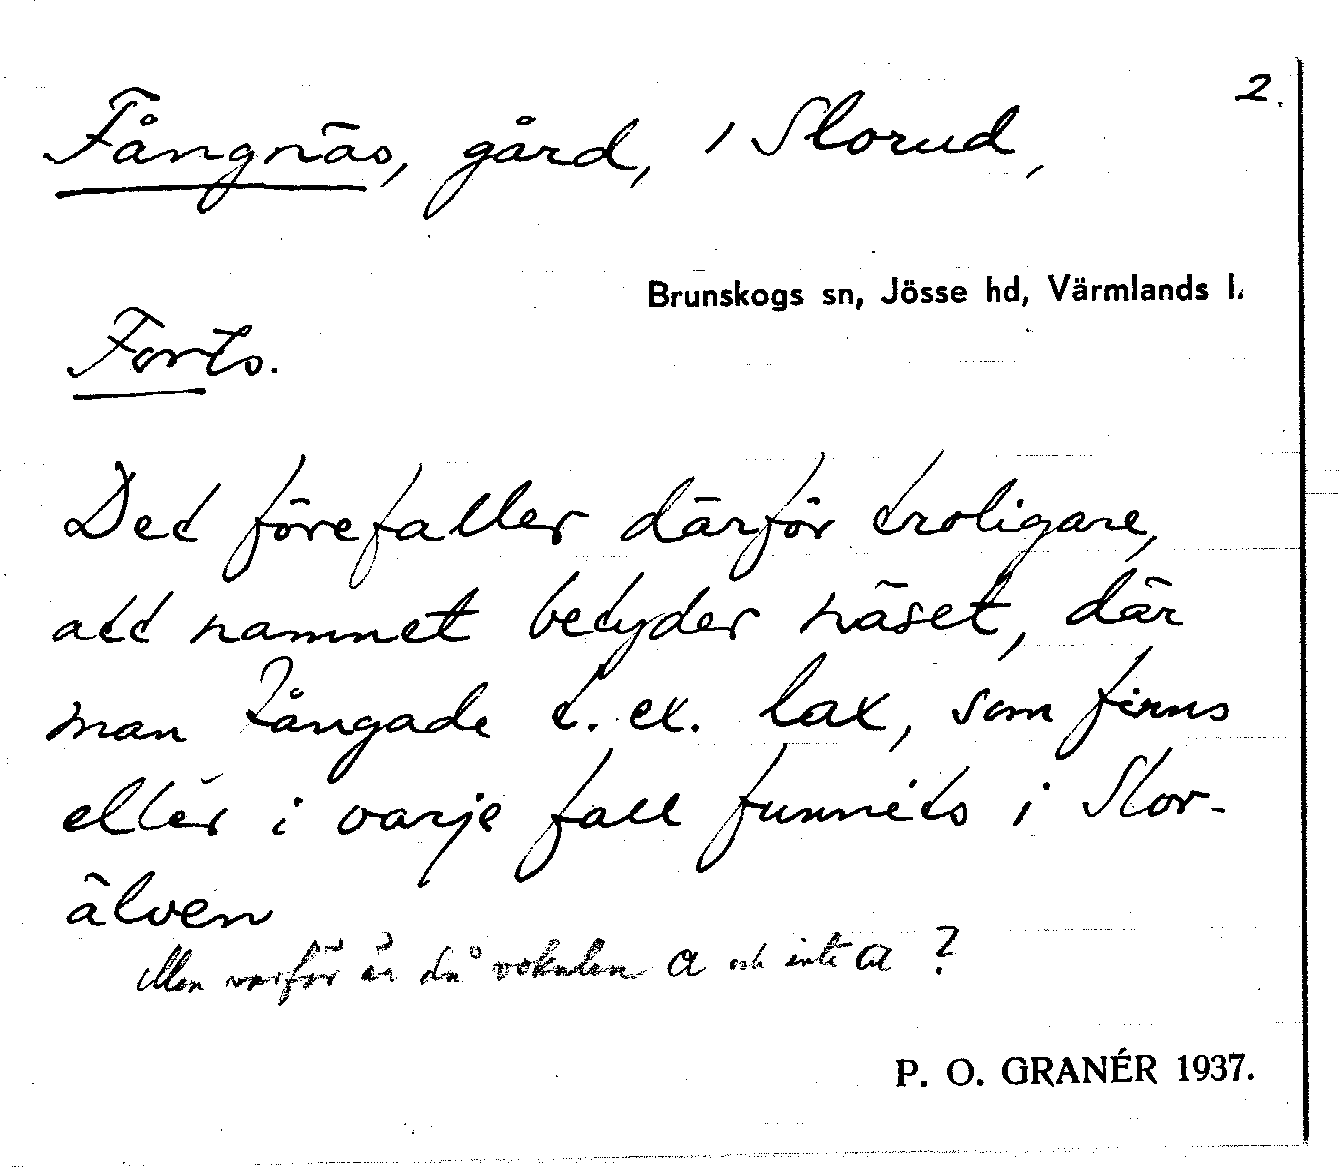 2.
Fångnäs, gård, i Slorud,
Brunskogs sn, Jösse hd, Värmlands l.
Forts.
Det förefaller därför troligare,
att namnet betyder näset, där
man fångade t. ex. lax, som finns
eller i varje fall funnits i Slor-
älven
Men varför är då vokalen a och inte ɑ ?
P. O. GRANÉR 1937.